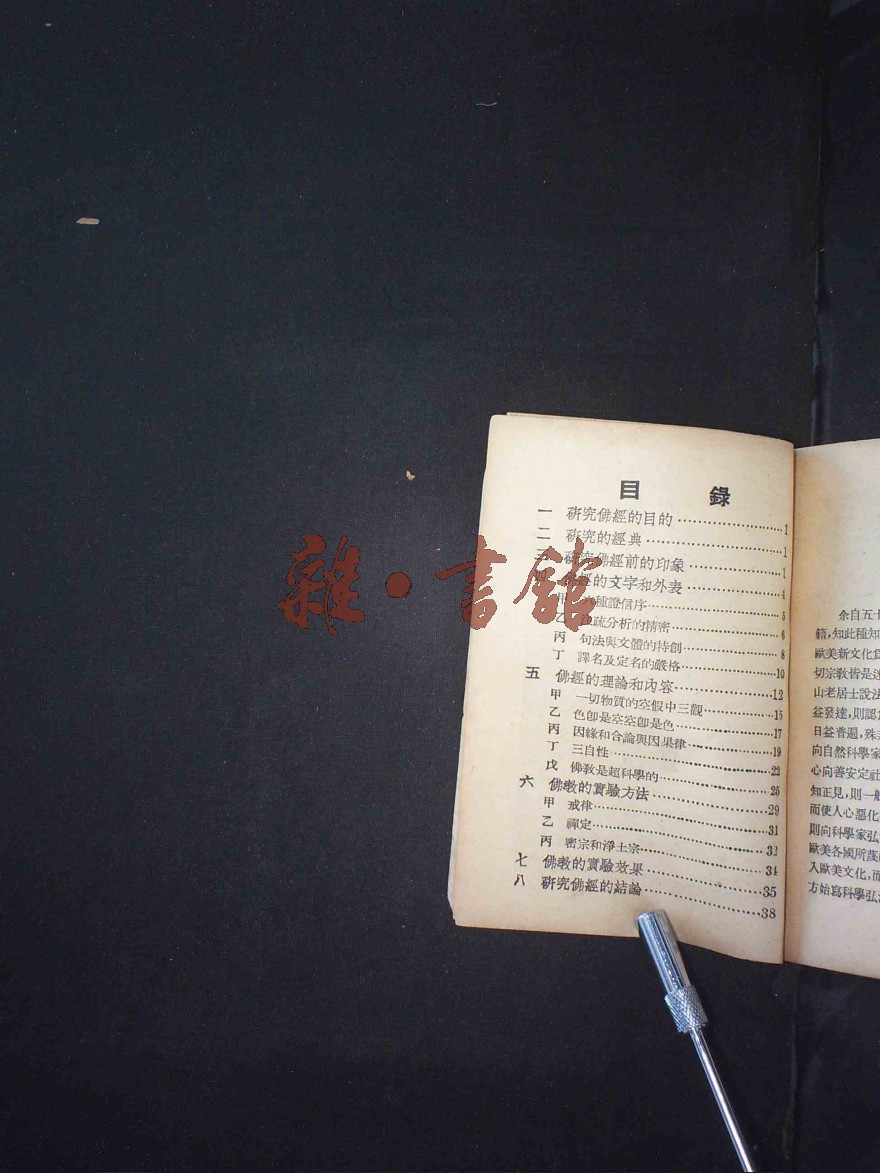 目錄
一 研究佛經的目的 1
二 研究的經典 1
三 研究佛經前的印象 1
四 佛經的文字和外表 4
甲 六種證信序 5
乙 注疏分析的精密 6
丙 句法與文體的特創 8
丁 譯名及定名的嚴格 10
五 佛經的理論和內容 12
甲 一切物質的空假中三觀 15
乙 色卽是空空卽是色 17
丙 因緣和合論與因果律 19
丁 三自性 22
戊 佛教是超科學的 25
六 佛教的實驗方法 29
甲 戒律 31
乙 禪定 32
丙 密宗和淨土宗 34
七 佛教的實驗效果 35
八 研究佛經的結論 38
余自五十
籍,知此種知
歐美新文化爲
切宗教皆是迷
山老居士說法
益發達,則認爲
日益普遍,殊非
向自然科學家
心向善安定社
知正見,則一般
而使人心惡化
則向科學家弘
歐美各國所
入歐美文化,而
方始寫科學弘法
雜·書館